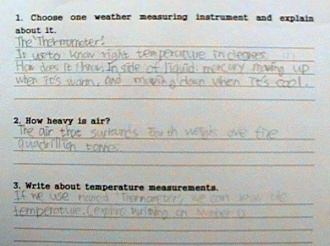 1. Choose one weather measuring instrument and explain
about it.
The 'Thermometer'.
It us to know right temperature in degrees.
How does it know, In side of liquid mercury moving up
when it's warm, and moving down when it's cool.
2. How heavy is air?
The air that surrounds Earth weighs ove five
quadrillion tonnes.
3. Write about temperature measurements.
If we use named Thermometers, we can know the
temperature. (explns writing on Number 1)